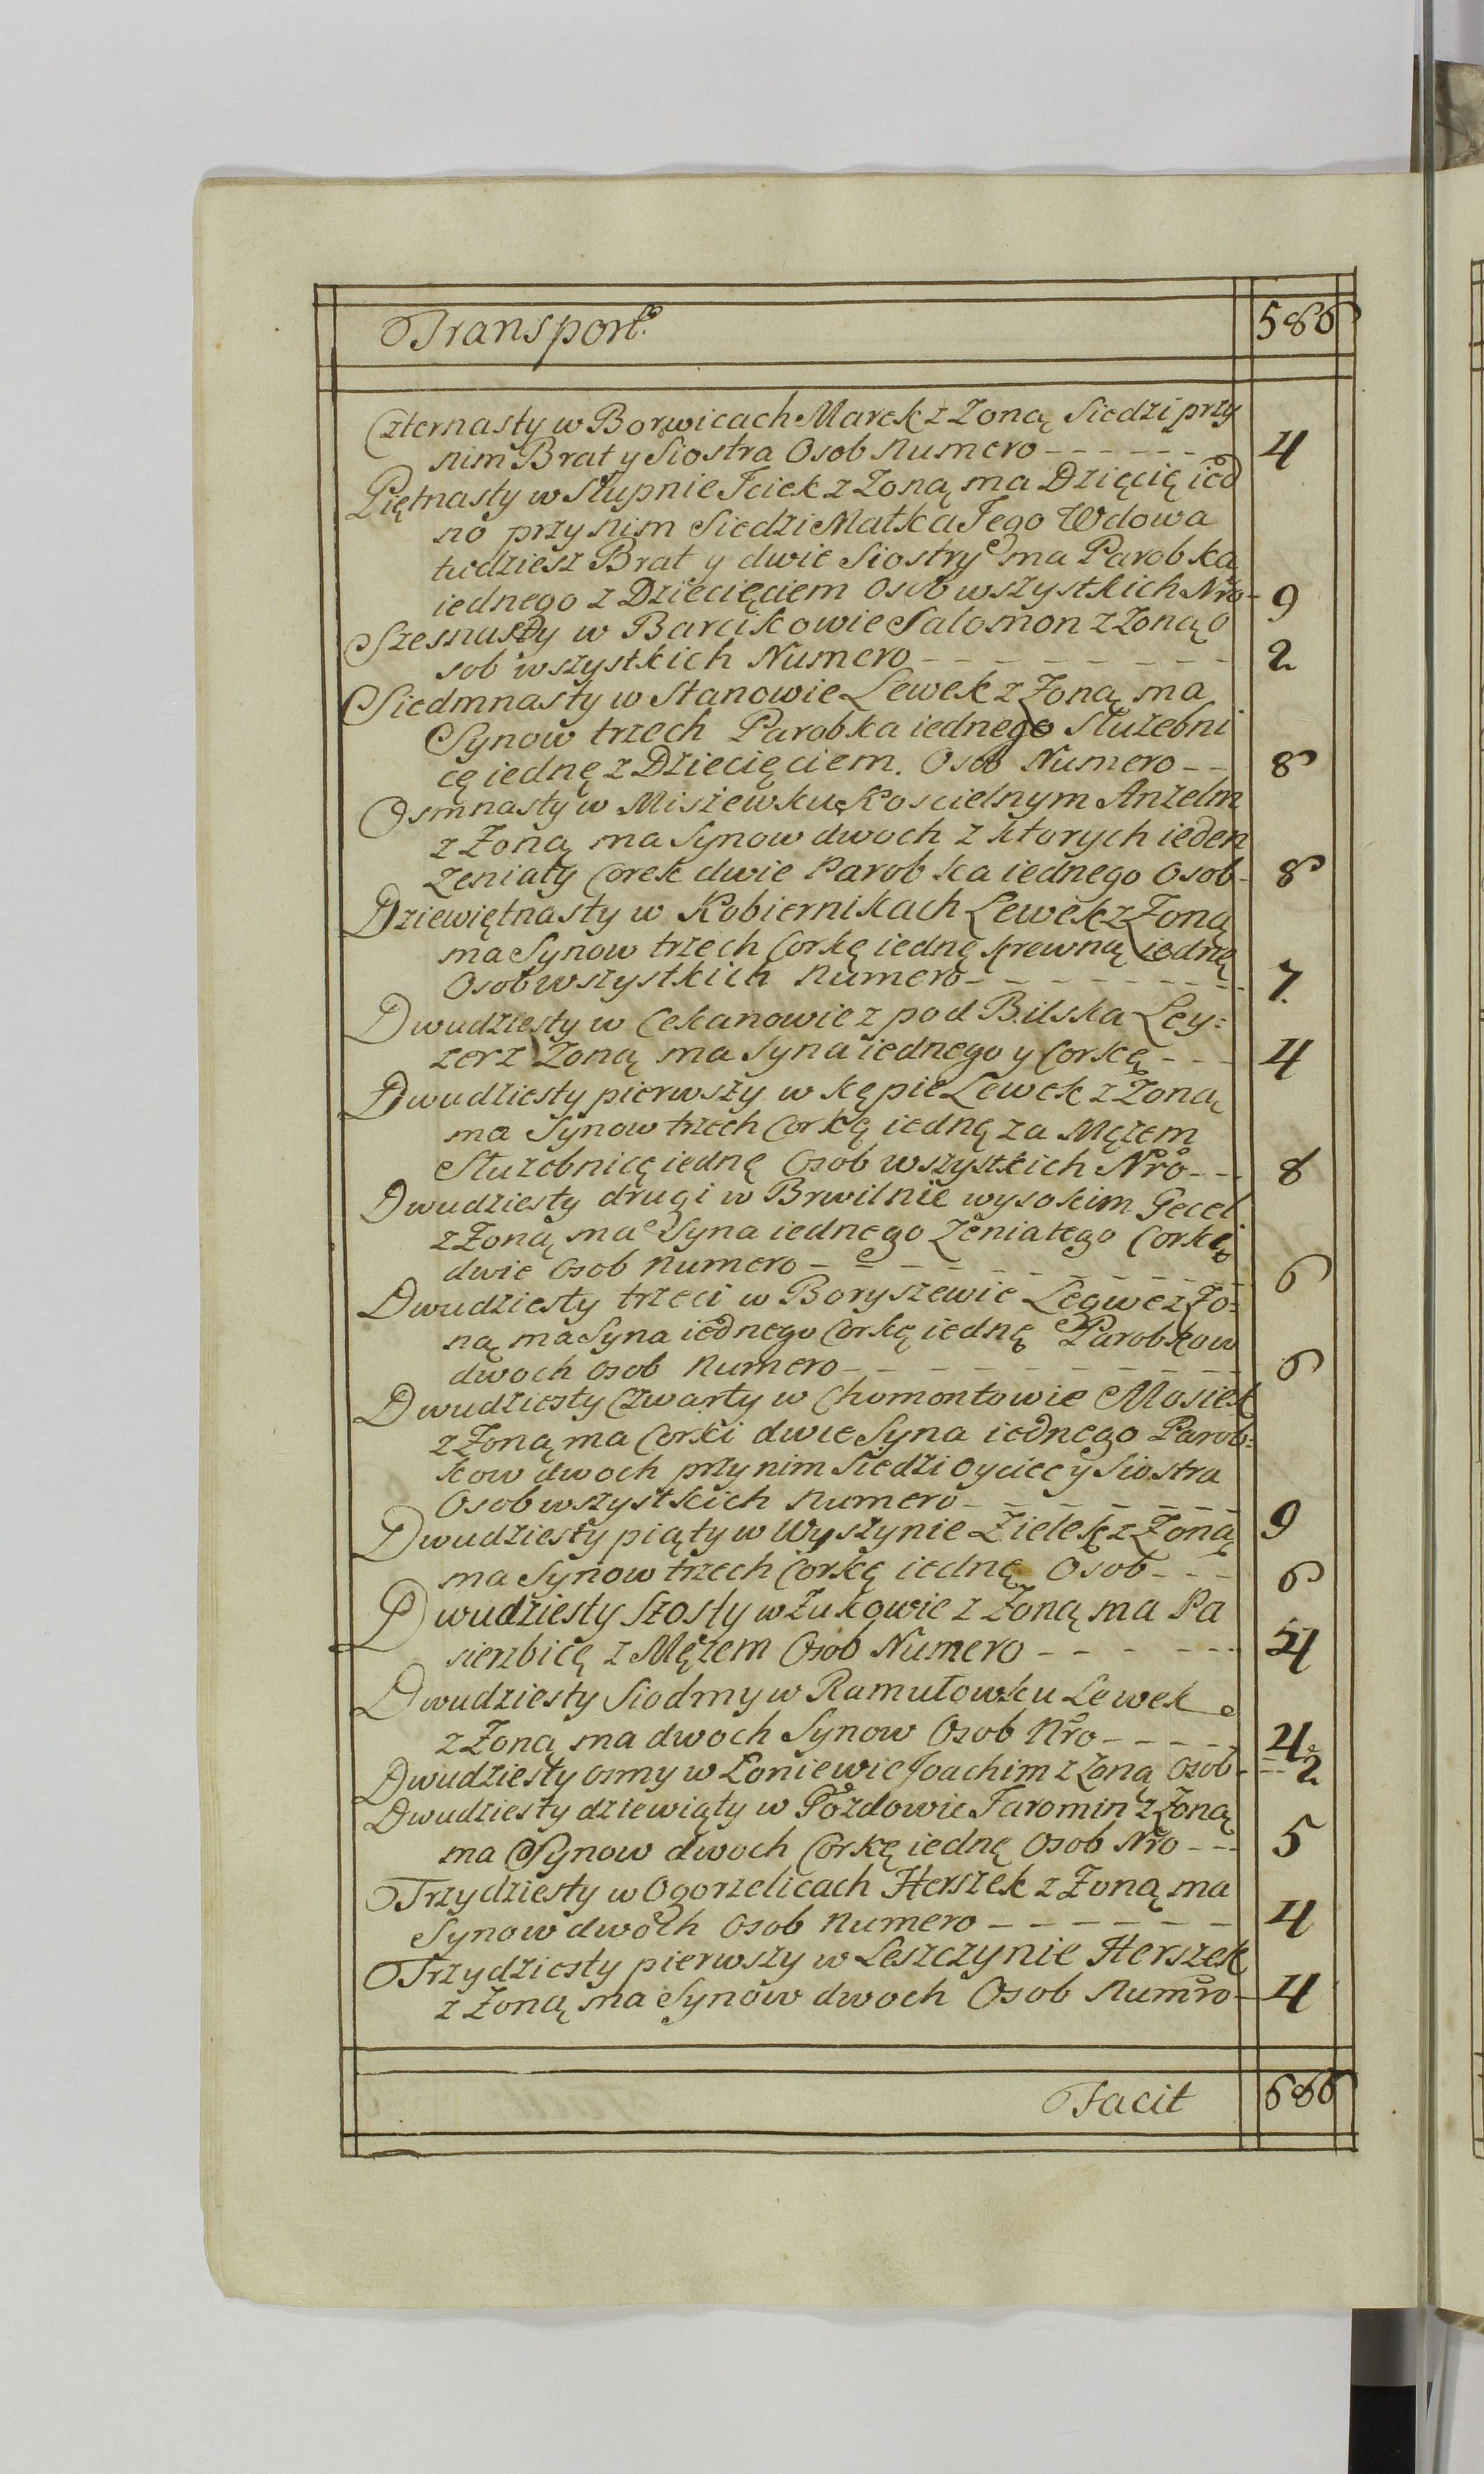 Transport.
586
Czternasty w Borwicach Marek z Zoną Siedzi przy
nim Brat y Siostra Osob Numero ------ 4
Piętnasty w Słupnie Jciek z Zoną ma Dziecię ied
no przy nim Siedzi Matka Jego Wdowa
tudziesz Brat y dwie Siostry ma Parobka
iednego z Dziecięciem Osob wszystkich Nro - 9
Szesnasty w Barcikowie Salomon z Zoną O
sob wszystkich Numero -------- 2
Siedmnasty w Stanowie Lewek z Zoną ma
Synow trzech Parobka iednego Służebni
cę iednę z Dziecięciem. Osob Numero -- 8
Osmnasty w Miszewku Koscielnym Anzelm
z Zoną ma Synow dwoch z ktorych ieden
zeniaty Corek dwie Parobka iednego Osob - 8
Dziewiętnasty w Kobiernikach Lewek z Zoną
ma Synow trzech Corkę iednę krewną iednę
Osob wszystkich Numero -------- 7.
Dwudziesty w Cekanowie z pod Bilska Ley=
zer z Zoną ma Syna iednego y Corkę --- 4
Dwudziesty pierwszy w kępie Lewek z Zoną
ma Synow trzech Corkę iednę za Mężem
Służebnicę iednę Osob wszystkich Nro -- 8
Dwudziesty drugi w Brwilnie wysokim Gecel
z Zoną ma Syna iednego Zeniatego Corki
dwie Osob Numero ---------- 6
Dwudziesty trzeci w Boryszewie Legwe z Zo=
ną ma Syna iednego Corkę iednę Parobkow
dwoch Osob Numero --------- 6
Dwudziesty Czwarty w Chomontowie Mosiek
z Zoną ma Corki dwie Syna iednego Parob=
kow dwoch przy nim Siedzi Oyciec y Siostra
Osob wszystkich Numero ------- 9
Dwudziesty piąty w Wyszynie Zielek z Zoną
ma Synow trzech Corkę iednę Osob --- 6
Dwudziesty Szosty w Żukowie z Zoną ma Pa
sierzbicę z Mężem Osob Numero ------ 4
Dwudziesty Siodmy w Ramutowku Lewek
z Zoną ma dwoch Synow Osob Nro ----- 4
Dwudziesty osmy w Łoniewie Joachim z Zoną Osob - 2
Dwudziesty dziewiąty w Gozdowie Jaromin z Zoną
ma Synow dwoch Corkę iednę Osob Nro -- 5
Trzydziesty w Ogorzelicach Herszek z Zoną ma
Synow dwoch Osob Numero ------ 4
Trzydziesty pierwszy w Leszczynie Herszek
z Zoną ma Synow dwoch Osob Numro - 4
Facit 686